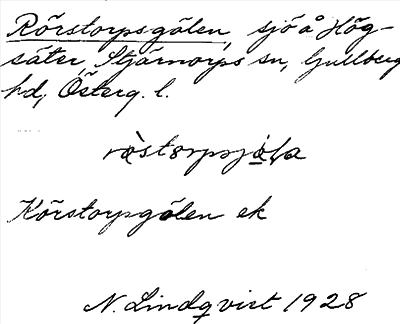 Rörstorpsgölen, sjö å Hög-
säter, Stjärnorps sn, Gullberg
hd, Österg. l.
Körstorpgölen ek
N. Lindqvist 1928